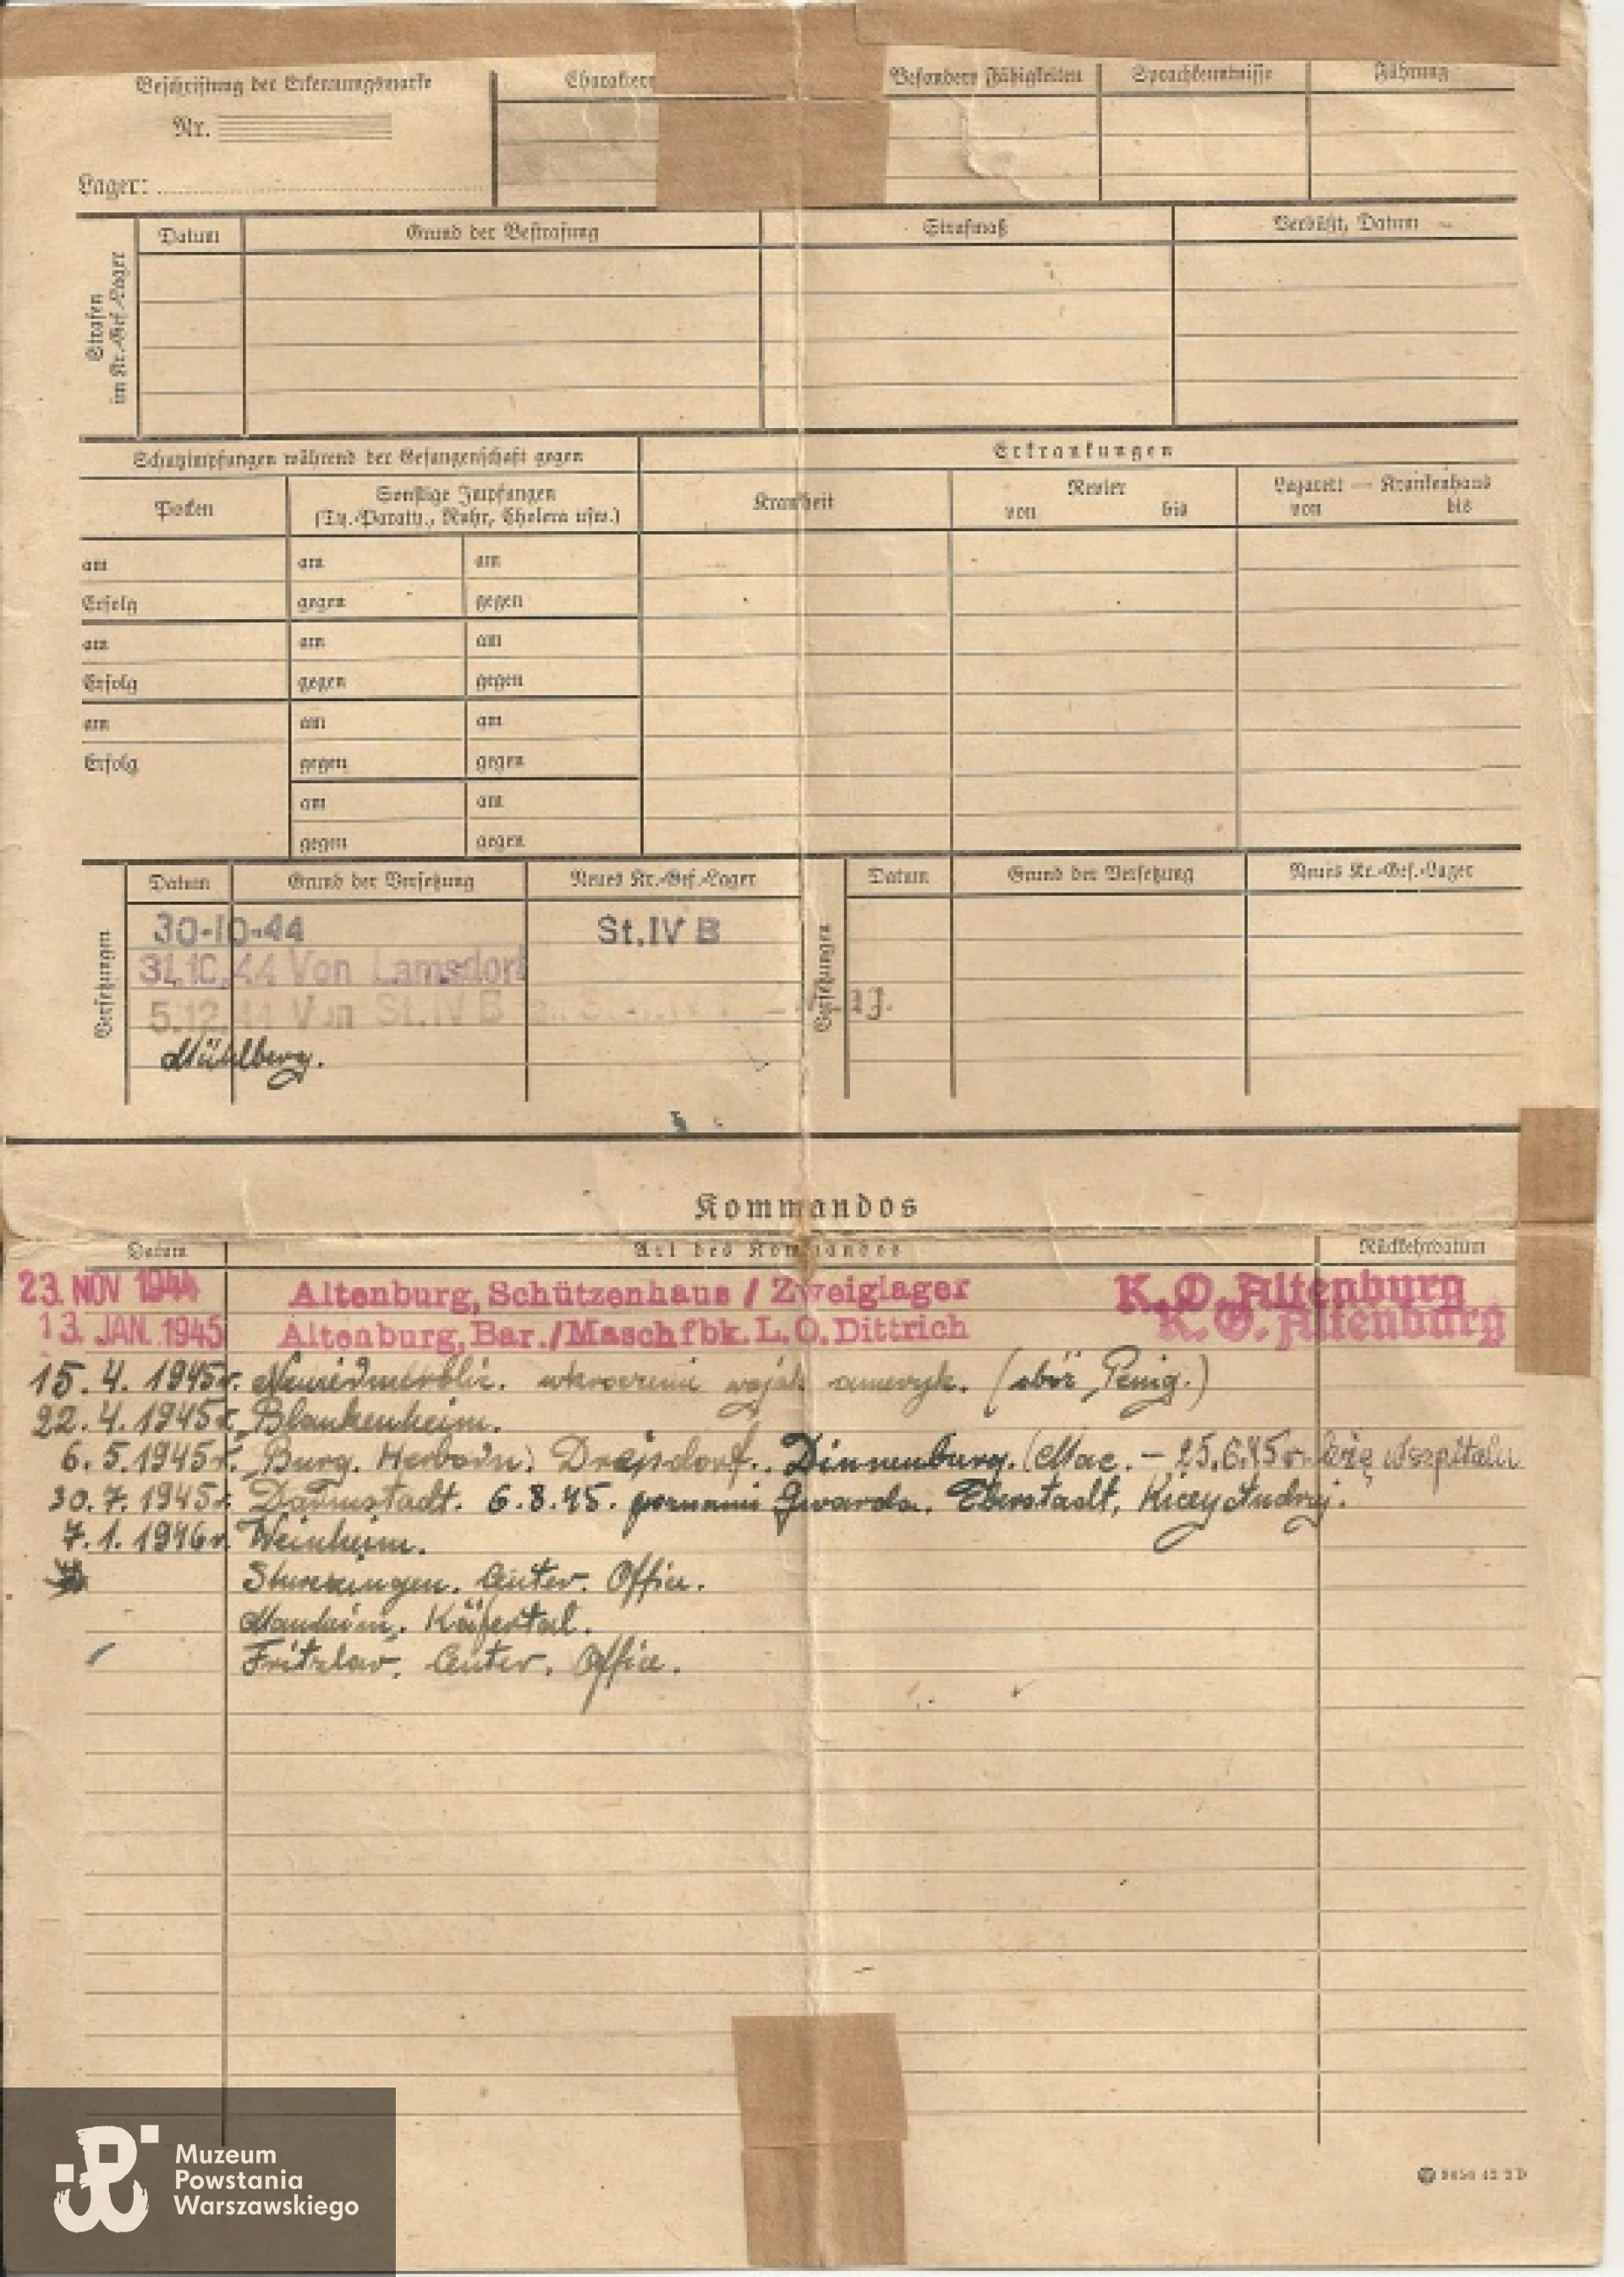 Beschriftung der Erkennungsmarke
Nr.
Lager:
Charakter
Besondere Fähigkeiten
Sprachkenntnisse
Führung
Strafen im Kr.-Gef.-Lager
Datum
Grund der Bestrafung
Strafmaß
Verbüßt, Datum
Schutzimpfungen während der Gefangenschaft gegen
Erkrankungen
Pocken
Sonstige Impfungen
(Ty.-Paraty., Ruhr, Cholera usw.)
Krankheit
Revier
von bis
Lazarett — Krankenhaus
von bis
am am am
Erfolg gegen gegen
am am am
Erfolg gegen gegen
am am am
Erfolg gegen gegen
am am
gegen gegen
Versetzungen
Datum Grund der Versetzung Neues Kr.-Gef.-Lager
30-10-44 St.IV B
31.10.44 Von Lamsdorf
5.12.44 Von St.IV B
Mühlberg.
Versetzungen
Datum Grund der Versetzung Neues Kr.-Gef.-Lager
Kommandos
Datum Art des Kommandos Rückkehrdatum
23. NOV 1944 Altenburg, Schützenhaus / Zweiglager K.O. Altenburg
13. JAN. 1945 Altenburg, Bar./Maschfbk. L.O. Dittrich K.O. Altenburg
15. 4. 1945r. ameryk. (obóz Penig.)
22. 4. 1945r. Blankenheim.
6. 5. 1945r. Burg. Herborn. Dinnenburg. 25.6.45r. leżę w szpitalu
30. 7. 1945r. Darmstadt. 6.8.45. Gwarda. Eberstadt,
7. 1. 1946r. Weinheim.
Office.
Käfertal.
Fritzlar. Office.
9656 42 2 D
Muzeum
Powstania
Warszawskiego